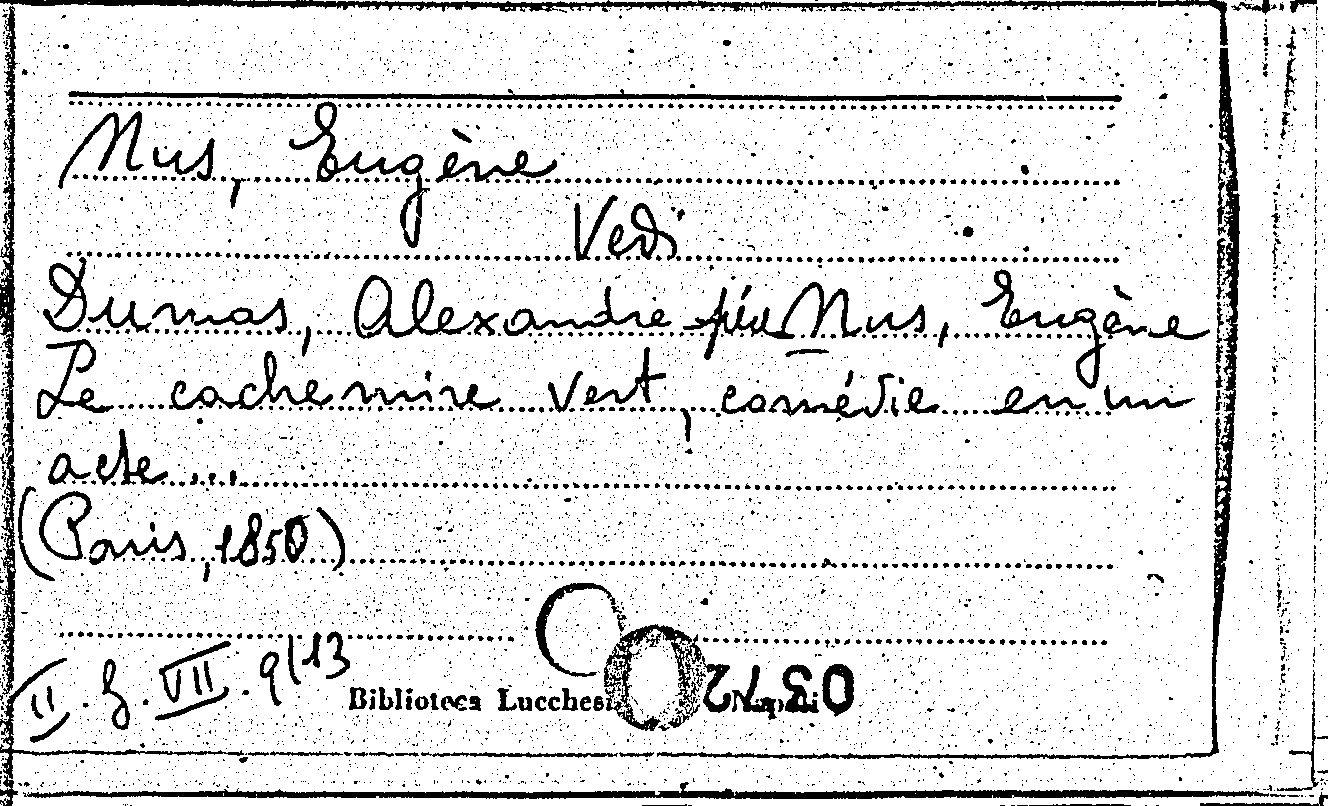 Nus, Eugène
Vedi
Dumas, Alexandre père Nus, Eugène
Le cachemire vert, comédie en un
acte...
(Paris, 1850)
II. G. VII. 9/13
Biblioteca Lucchesi Napoli